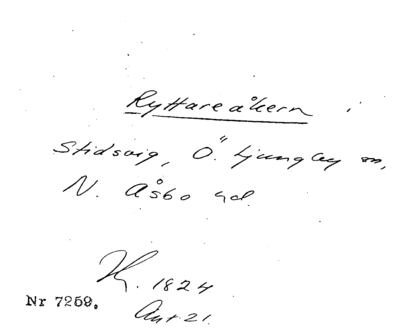 Ryttareåkern
Stidsvig, Ö. Ljungby sn,
N. Åsbo hd.
K. 1824
Ant. 21.
Nr 7259.